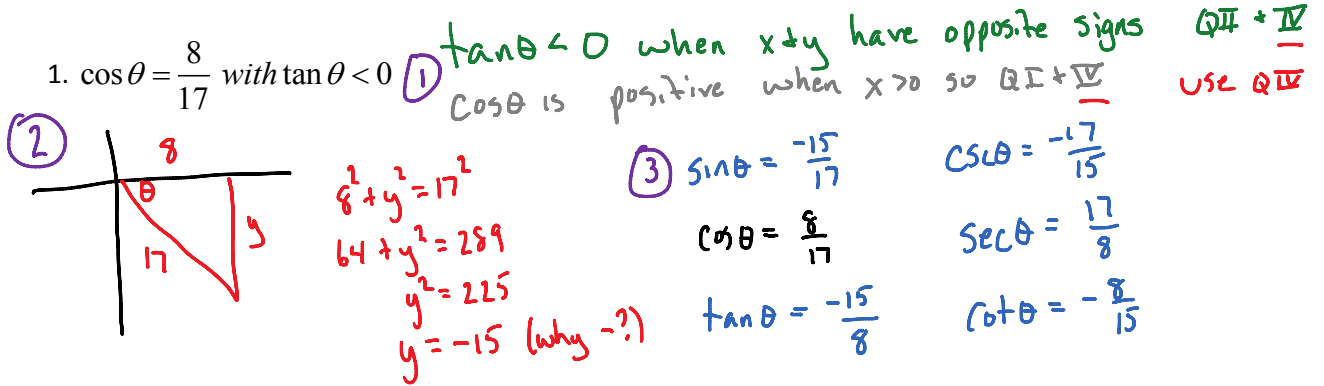 1. cos θ = 8/17 with tan θ < 0
① tanθ < 0 when x + y have opposite signs QII + IV
cosθ is positive when x>0 so QI + IV use QIV
②
8
θ
17
y
8² + y² = 17²
64 + y² = 289
y² = 225
y = -15 (why -?)
③ sinθ = -15/17 cscθ = -17/15
cosθ = 8/17 secθ = 17/8
tanθ = -15/8 cotθ = -8/15